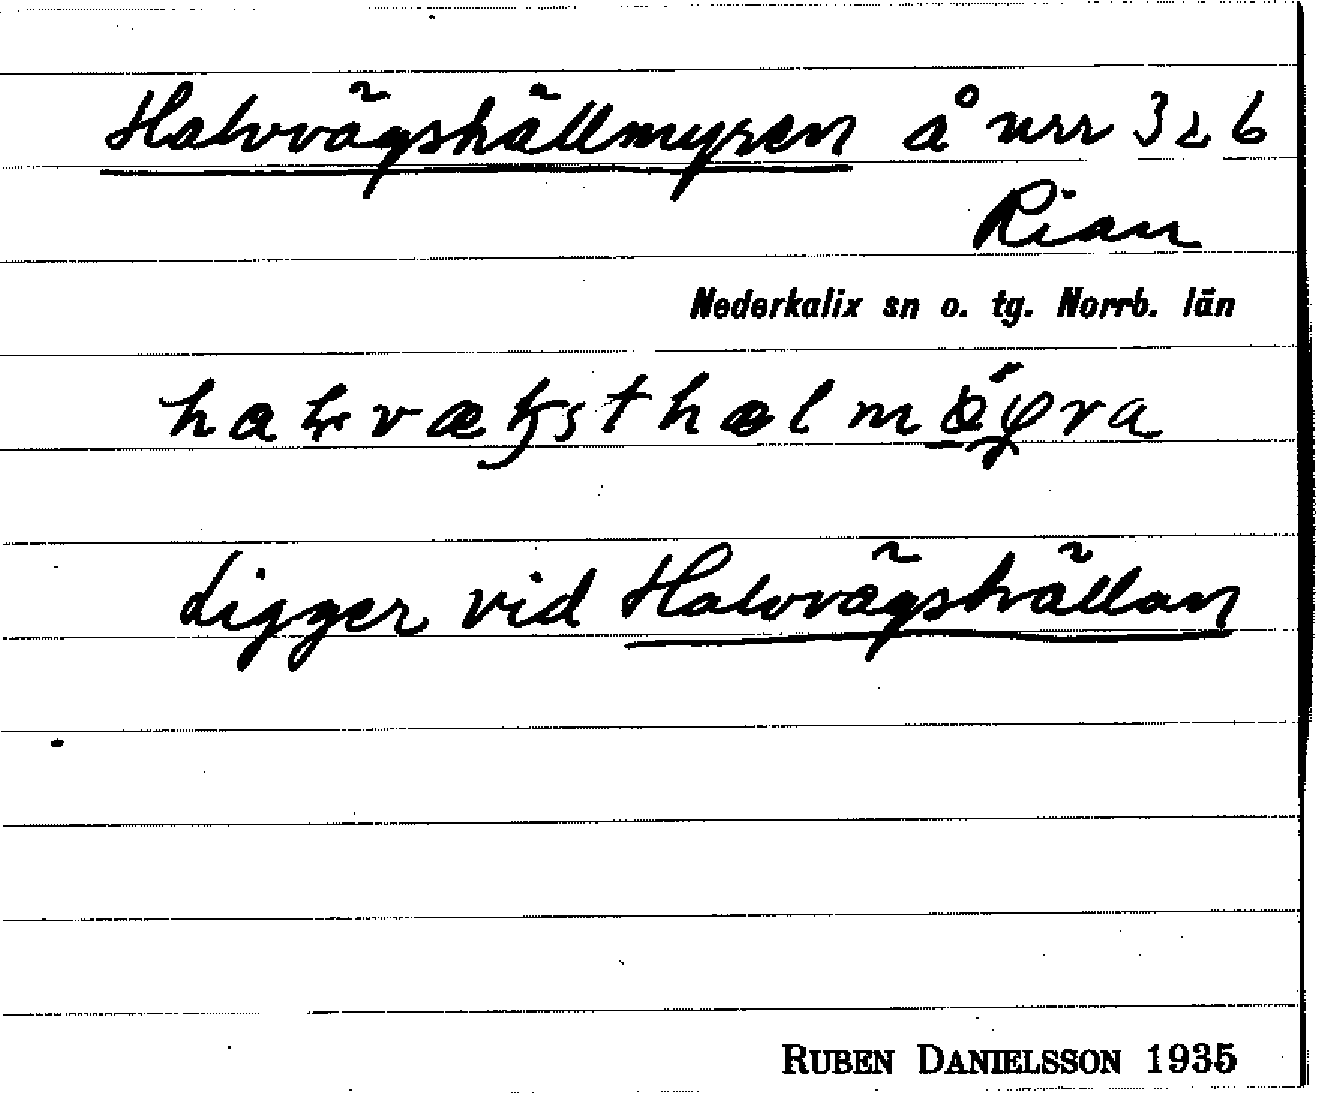 Halvvägshällmyren å urr 326
Rian
Nederkalix sn o. tg. Norrb. län
Ligger vid Halvvägshällan
RUBEN DANIELSSON 1935